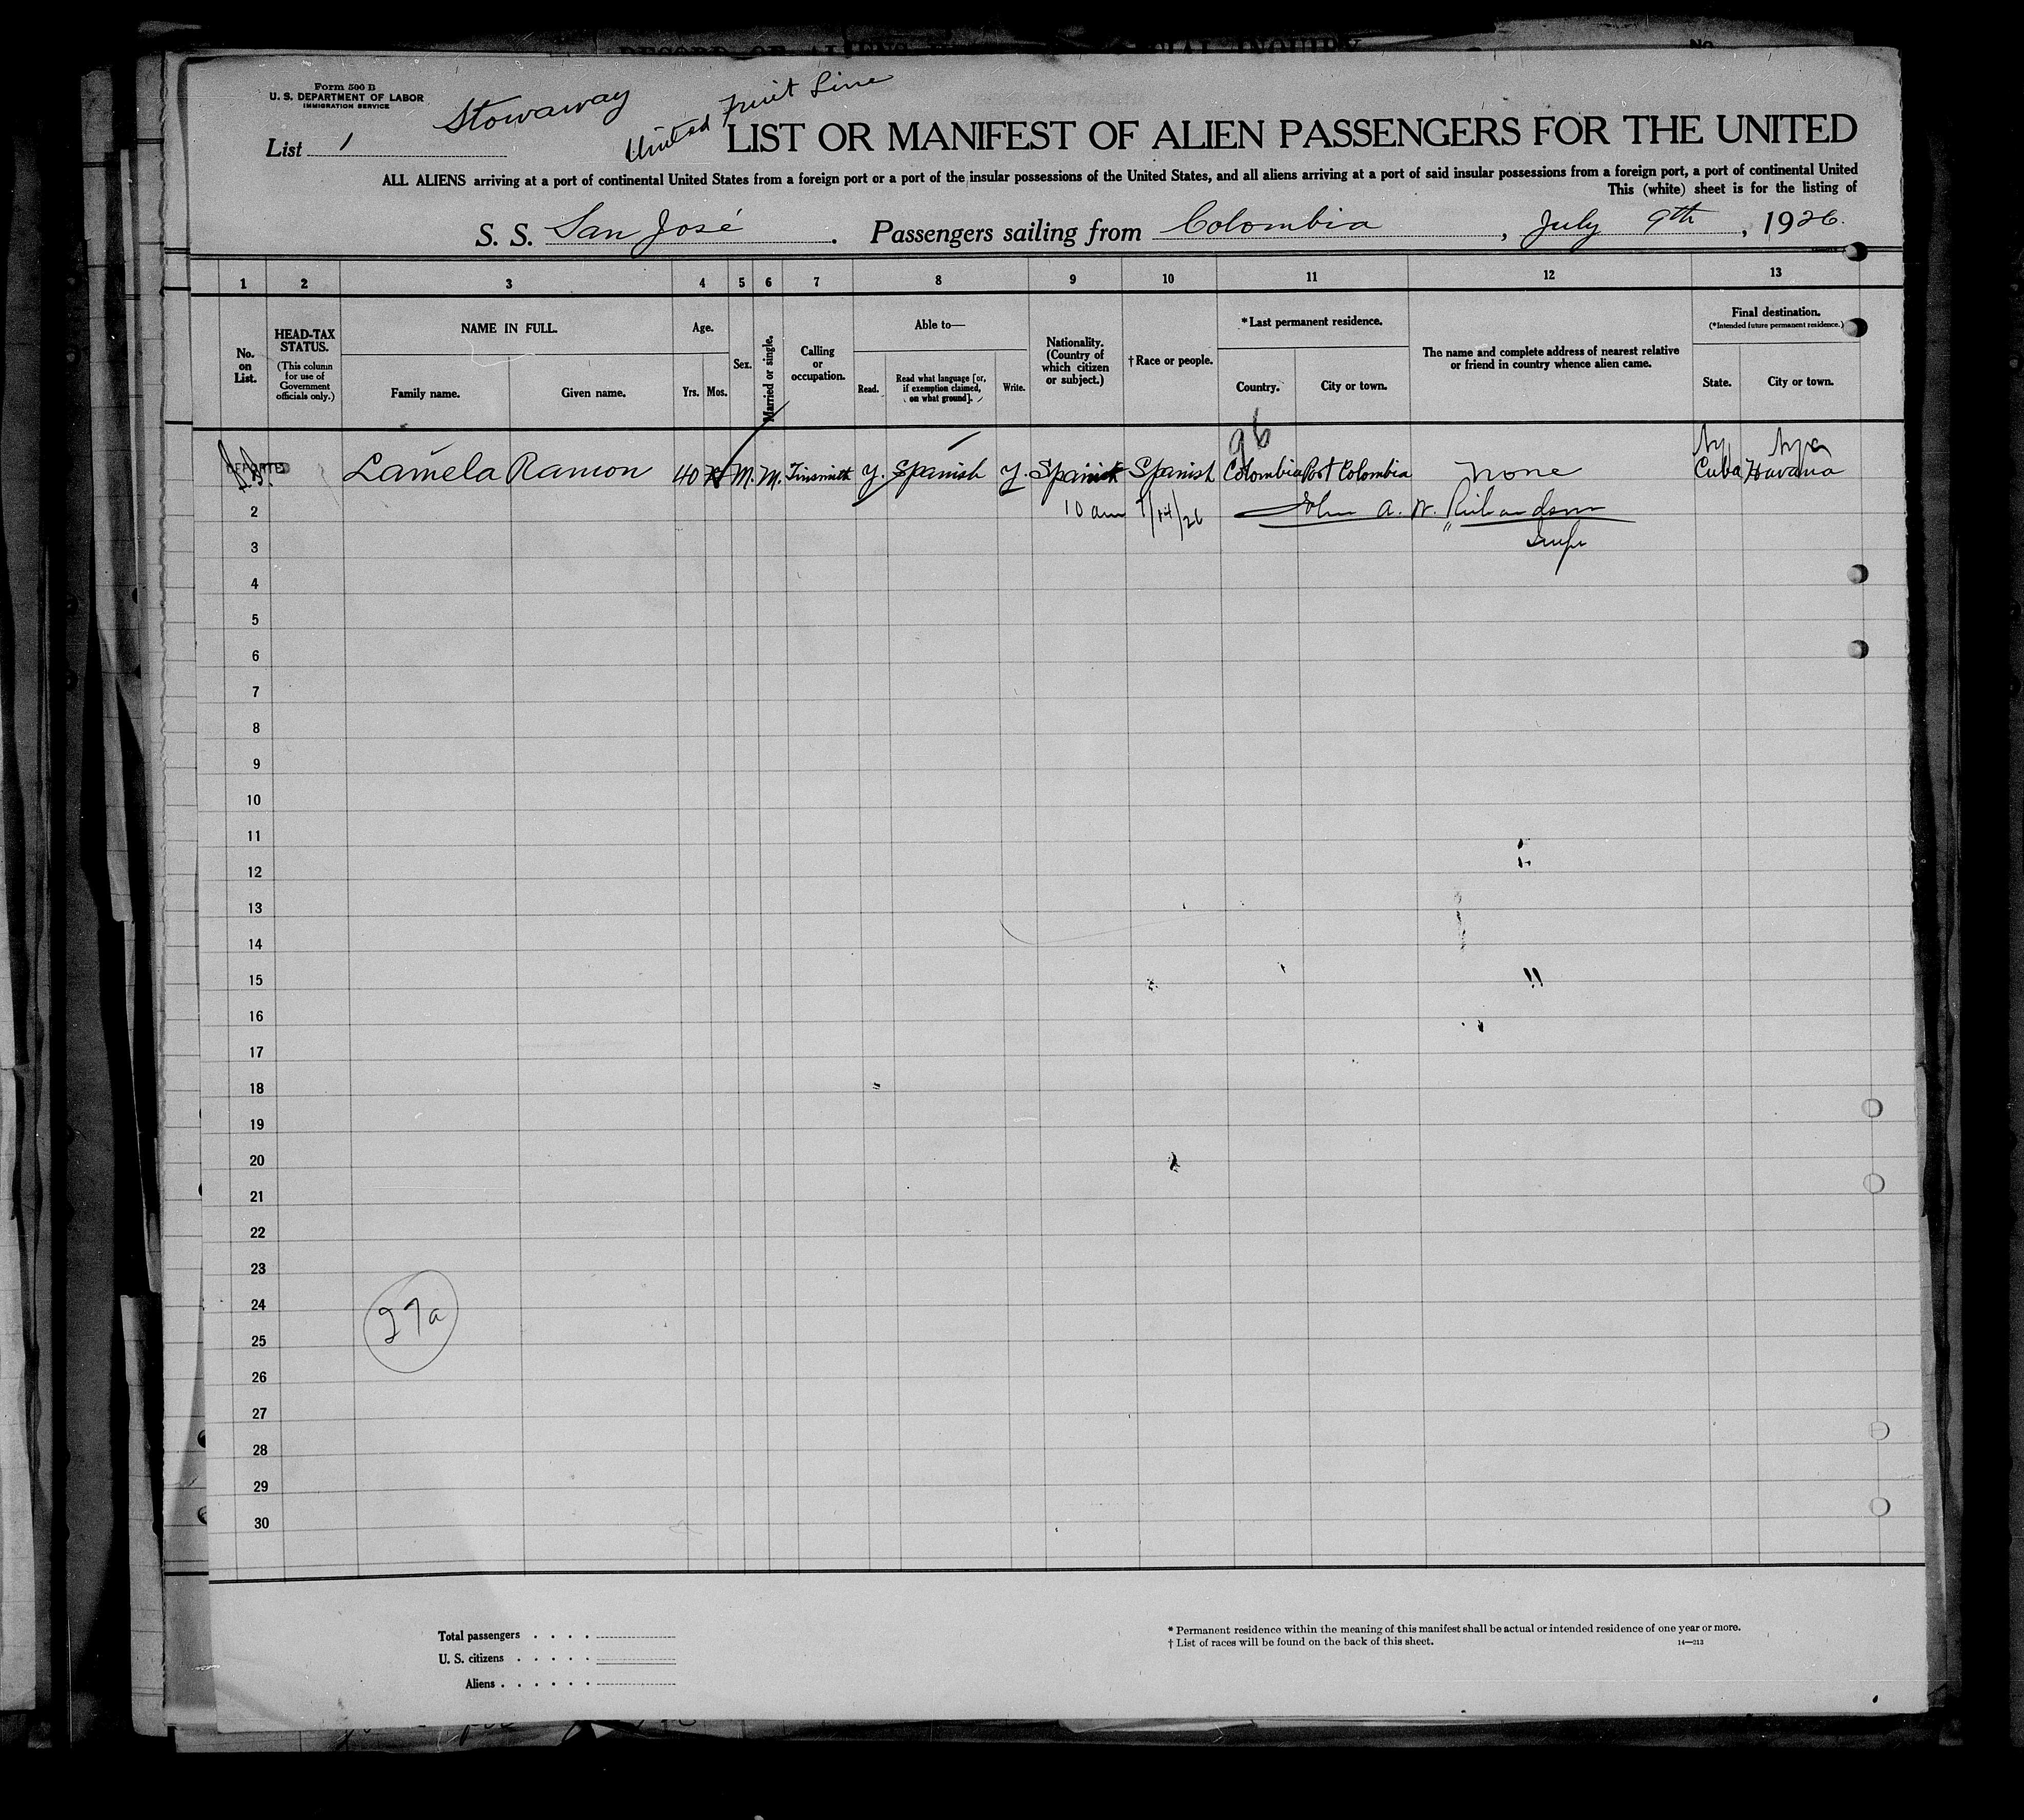 Form 500 B
U. S. DEPARTMENT OF LABOR
IMMIGRATION SERVICE
Stowaway
United Fruit Line
List 1
LIST OR MANIFEST OF ALIEN PASSENGERS FOR THE UNITED
ALL ALIENS arriving at a port of continental United States from a foreign port or a port of the insular possessions of the United States, and all aliens arriving at a port of said insular possessions from a foreign port, a port of continental United
This (white) sheet is for the listing of
S. S. San José. Passengers sailing from Colombia, July 9th, 1926.
1 2 3 4 5 6 7 8 9 10 11 12 13
No. on List.
HEAD-TAX STATUS.
(This column for use of Government officials only.)
NAME IN FULL.
Family name. Given name.
Age.
Yrs. Mos.
Sex.
Married or single.
Calling or occupation.
Able to—
Read. Read what language [or, if exemption claimed, on what ground]. Write.
Nationality. (Country of which citizen or subject.)
†Race or people.
*Last permanent residence.
Country. City or town.
The name and complete address of nearest relative or friend in country whence alien came.
Final destination.
(*Intended future permanent residence.)
State. City or town.
96
DEPORTED Lamela Ramon 40 M. M. Tinsmith Y. Spanish Y. Spanish Spanish Colombia Port Colombia none Cuba Havana
2 10 am 7/14/26 John A. W. Richardson
3
4
5
6
7
8
9
10
11
12
13
14
15
16
17
18
19
20
21
22
23
24
27a
25
26
27
28
29
30
Total passengers
U. S. citizens
Aliens
* Permanent residence within the meaning of this manifest shall be actual or intended residence of one year or more.
† List of races will be found on the back of this sheet.
14—213